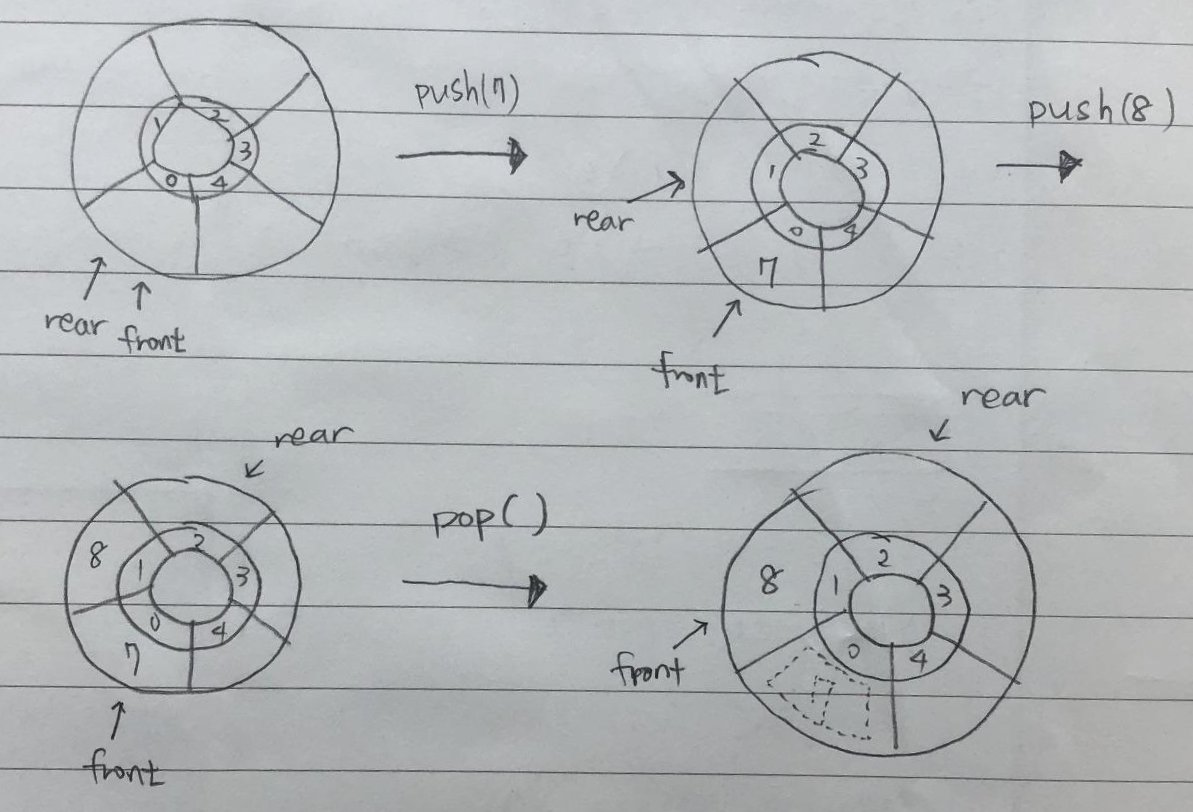 1 2 3 0 4
rear front
push(7)
1 2 3 0 4
7
rear
front
push(8)
8 1 2 3 0 4
7
rear
front
pop()
8 1 2 3 0 4
7
rear
front